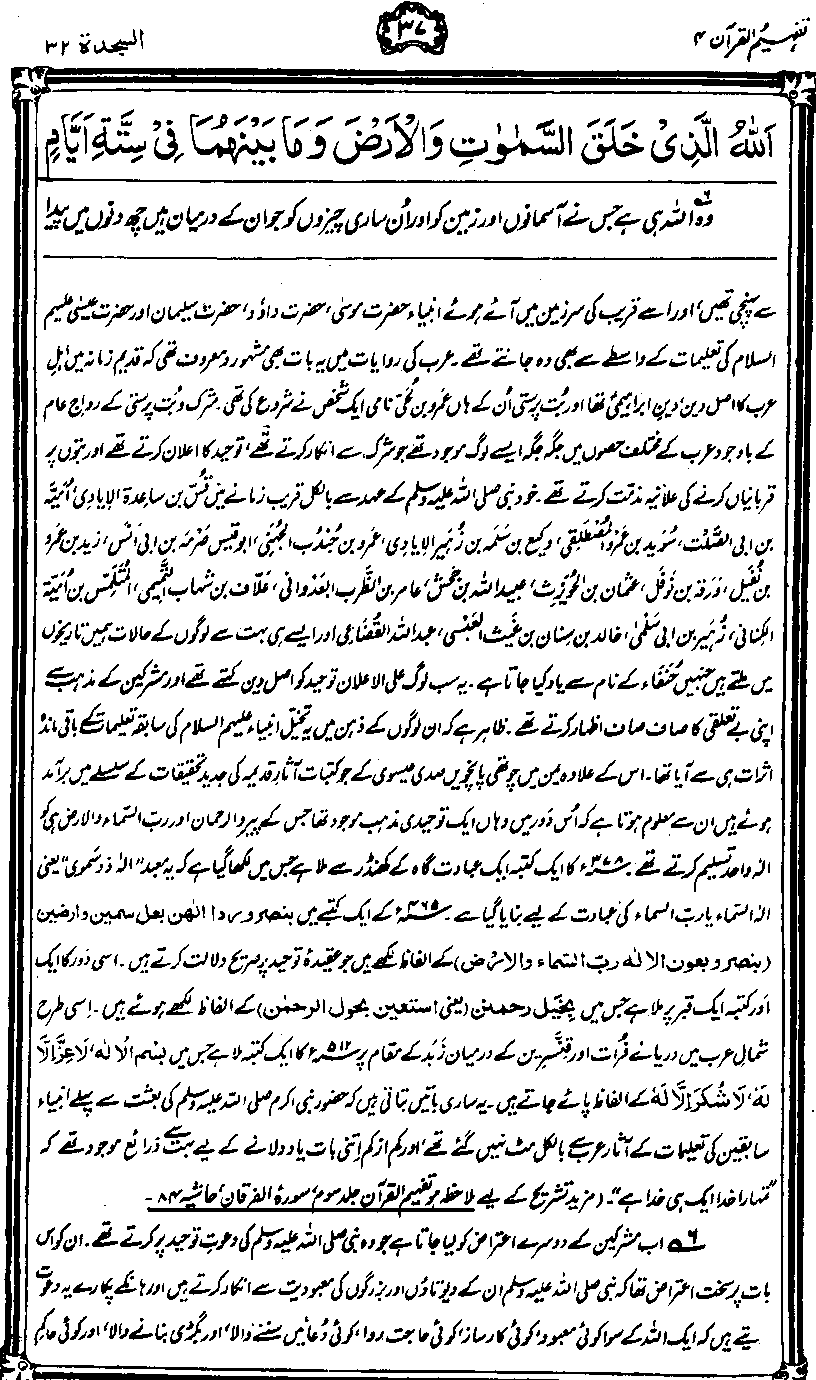 تفہیم القرآن ۴
۳۷
السجدۃ ۳۲
اَللّٰهُ الَّذِیْ خَلَقَ السَّمٰوٰتِ وَالْاَرْضَ وَمَا بَیْنَهُمَا فِیْ سِتَّةِ اَیَّامٍ
وہ ۶ اللہ ہی ہے جس نے آسمانوں اور زمین کو اور اُن ساری چیزوں کو جو ان کے درمیان ہیں چھ دنوں میں پیدا
سے پہنچی تھیں، اور اسے قریب کی سرزمین میں آئے ہوئے انبیاء حضرت موسیٰ، حضرت داؤد، حضرت سلیمان اور حضرت عیسیٰ علیہم
السلام کی تعلیمات کے واسطے سے بھی وہ جانتے تھے۔ عرب کی روایات میں یہ بات بھی مشہور و معروف تھی کہ قدیم زمانہ میں اہلِ
عرب کا اصل دین، دینِ ابراہیمی تھا اور بُت پرستی اُن کے ہاں عمرو بن لُحَیّ نامی ایک شخص نے شروع کی تھی۔ شرک و بُت پرستی کے رواجِ عام
کے باوجود عرب کے مختلف حصوں میں جگہ جگہ ایسے لوگ موجود تھے جو شرک سے انکار کرتے تھے، توحید کا اعلان کرتے تھے اور بتوں پر
قربانیاں کرنے کی علانیہ مذمت کرتے تھے۔ خود نبی صلی اللہ علیہ وسلم کے عہد سے بالکل قریب زمانے میں قُسّ بن ساعدۃ الاِیادی، اُمَیّہ
بن ابی الصَّلْت، سُوَید بن عَمْرو المُصْطَلِقی، وکیع بن سَلَمہ بن زُہَیر الایادی، عمرو بن جُندُب الجُہَنی، ابو قیس صَرْمہ بن ابی انس، زید بن عمرو
بن نُفَیل، ورقہ بن نَوفَل، عثمان بن الحُوَیرِث، عبید اللہ بن جَحْش، عامر بن الظَّرِب العَدْوانی، عَلّاف بن شہاب التَّمیمی، المُتَلَمِّس بن اُمَیّۃ
الکنانی، زُہَیر بن ابی سَلْمیٰ، خالد بن سِنان بن غَیث العَبْسی، عبد اللہ القُضَاعی اور ایسے ہی بہت سے لوگوں کے حالات ہمیں تاریخوں
میں ملتے ہیں جنہیں حُنَفاء کے نام سے یاد کیا جاتا ہے۔ یہ سب لوگ علی الاعلان توحید کو اصل دین کہتے تھے اور مشرکین کے مذہب سے
اپنی بے تعلقی کا صاف صاف اظہار کرتے تھے۔ ظاہر ہے کہ ان لوگوں کے ذہن میں یہ تخیل انبیاء علیہم السلام کی سابقہ تعلیمات کے باقی ماندہ
اثرات ہی سے آیا تھا۔ اس کے علاوہ یمن میں چوتھی پانچویں صدی عیسوی کے جو کتبات آثارِ قدیمہ کی جدید تحقیقات کے سلسلے میں برآمد
ہوئے ہیں ان سے معلوم ہوتا ہے کہ اُس دَور میں وہاں ایک توحیدی مذہب موجود تھا جس کے پیرو الرحمان اور ربّ السّماء والارض ہی کو
الٰہ واحد تسلیم کرتے تھے۔ ۳۷۸ء کا ایک کتبہ ایک عبادت گاہ کے کھنڈر سے ملا ہے جس میں لکھا گیا ہے کہ یہ معبد "الٰہ ذو سموی" یعنی
الٰہ السّماء یا ربّ السماء کی عبادت کے لیے بنایا گیا ہے۔ ۴۶۵ء کے ایک کتبے میں بنصر و ردا الٰھن بعل سمین وارضین
(بنصر و بعون الالٰه ربّ السّماء والارض) کے الفاظ لکھے ہیں جو عقیدۂ توحید پر صریح دلالت کرتے ہیں۔ اسی دَور کا ایک
اور کتبہ ایک قبر پر ملا ہے جس میں بِخَیْل رحمنن (یعنی استعین بحول الرحمٰن) کے الفاظ لکھے ہوئے ہیں۔ اِسی طرح
شمالی عرب میں دریائے فُرات اور قِنَّسْرِین کے درمیان زَبَد کے مقام پر ۵۱۲ء کا ایک کتبہ ملا ہے جس میں بِسْم الْاِلٰه، لَا عِزَّ اِلَّا
لَهٗ، لَا شُکْرَ اِلَّا لَهٗ کے الفاظ پائے جاتے ہیں۔ یہ ساری باتیں بتاتی ہیں کہ حضور نبی اکرم صلی اللہ علیہ وسلم کی بعثت سے پہلے انبیاء
سابقین کی تعلیمات کے آثار عرب سے بالکل مٹ نہیں گئے تھے اور کم از کم اِتنی بات یاد دلانے کے لیے بہت سے ذرائع موجود تھے کہ
"تمہارا خدا ایک ہی خدا ہے"۔ (مزید تشریح کے لیے ملاحظہ ہو تفہیم القرآن جلد سوم، سورۃ الفرقان، حاشیہ ۸۴۔
۶ اب مشرکین کے دوسرے اعتراض کو لیا جاتا ہے جو وہ نبی صلی اللہ علیہ وسلم کی دعوتِ توحید پر کرتے تھے۔ ان کو اس
بات پر سخت اعتراض تھا کہ نبی صلی اللہ علیہ وسلم ان کے دیوتاؤں اور بزرگوں کی معبودیت سے انکار کرتے ہیں اور ہانکے پکارے یہ دعوت
دیتے ہیں کہ ایک اللہ کے سوا کوئی معبود، کوئی کارساز، کوئی حاجت روا، کوئی دُعائیں سننے والا، اور بگڑی بنانے والا، اور کوئی حاکمِ